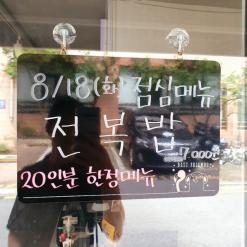 8/18(화) 점심메뉴
전복밥
7,000원
20인분 한정메뉴
BEST FRIENDS